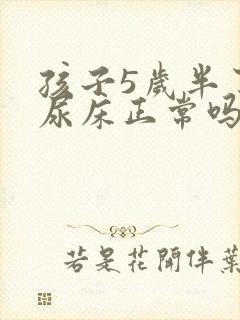 孩子5歲半
尿床正常吗
若是花開伴葉